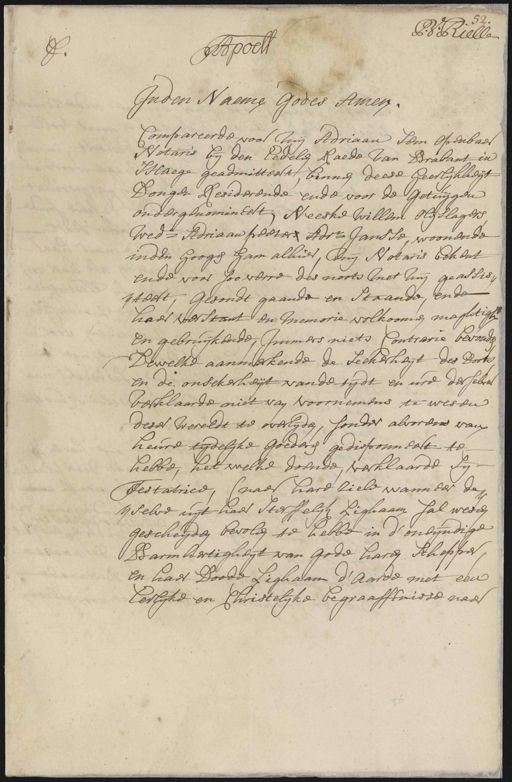 52.
Pr: Rielle
Apost
In den Naeme Godes Amen.
Compareerde voor mij Adriaan Openbaer
Notaris bij den Edele Raede van Brabant in
S'Haege geadmitteert, binne deese Heerlijkheijt
Dongen Resideerende ende voor de Getuijgen
ondergenomineert, Neeske Willem
Wed= Adriaan Peeter Adr: Jansse, woonende
inden alhier, mij Notaris bekent
ende voor soo verre des noots met mij geassis-
teert, Gesondt gaande en Staande, ende
haer verstant en Memorie volkome maghtigh
en gebruijkende, Immers niets Contrarie bevonde
Dewelke aanmerkende de Seekerheijt des Doots
en de onsekerheijt van de tijdt en ure derselver
verklaarde niet van voornemens te wesen
deser Wereldt te overlijde, sonder alvorens van
heure tijdelijke Goedere gedisponeert te
hebbe, het welke doende, verklaarde sij
Testatrice, haere Ziele wanneer de-
selve uijt haer Sterffelijk Lighaam sal wese
gescheijde bevole te hebbe in d'onijndige
Barmhertigheijt van Gode hare Schepper,
en haer Doode Lighaam d'Aarde met een
Eerlijke en Christelijke begraaffenisse naer